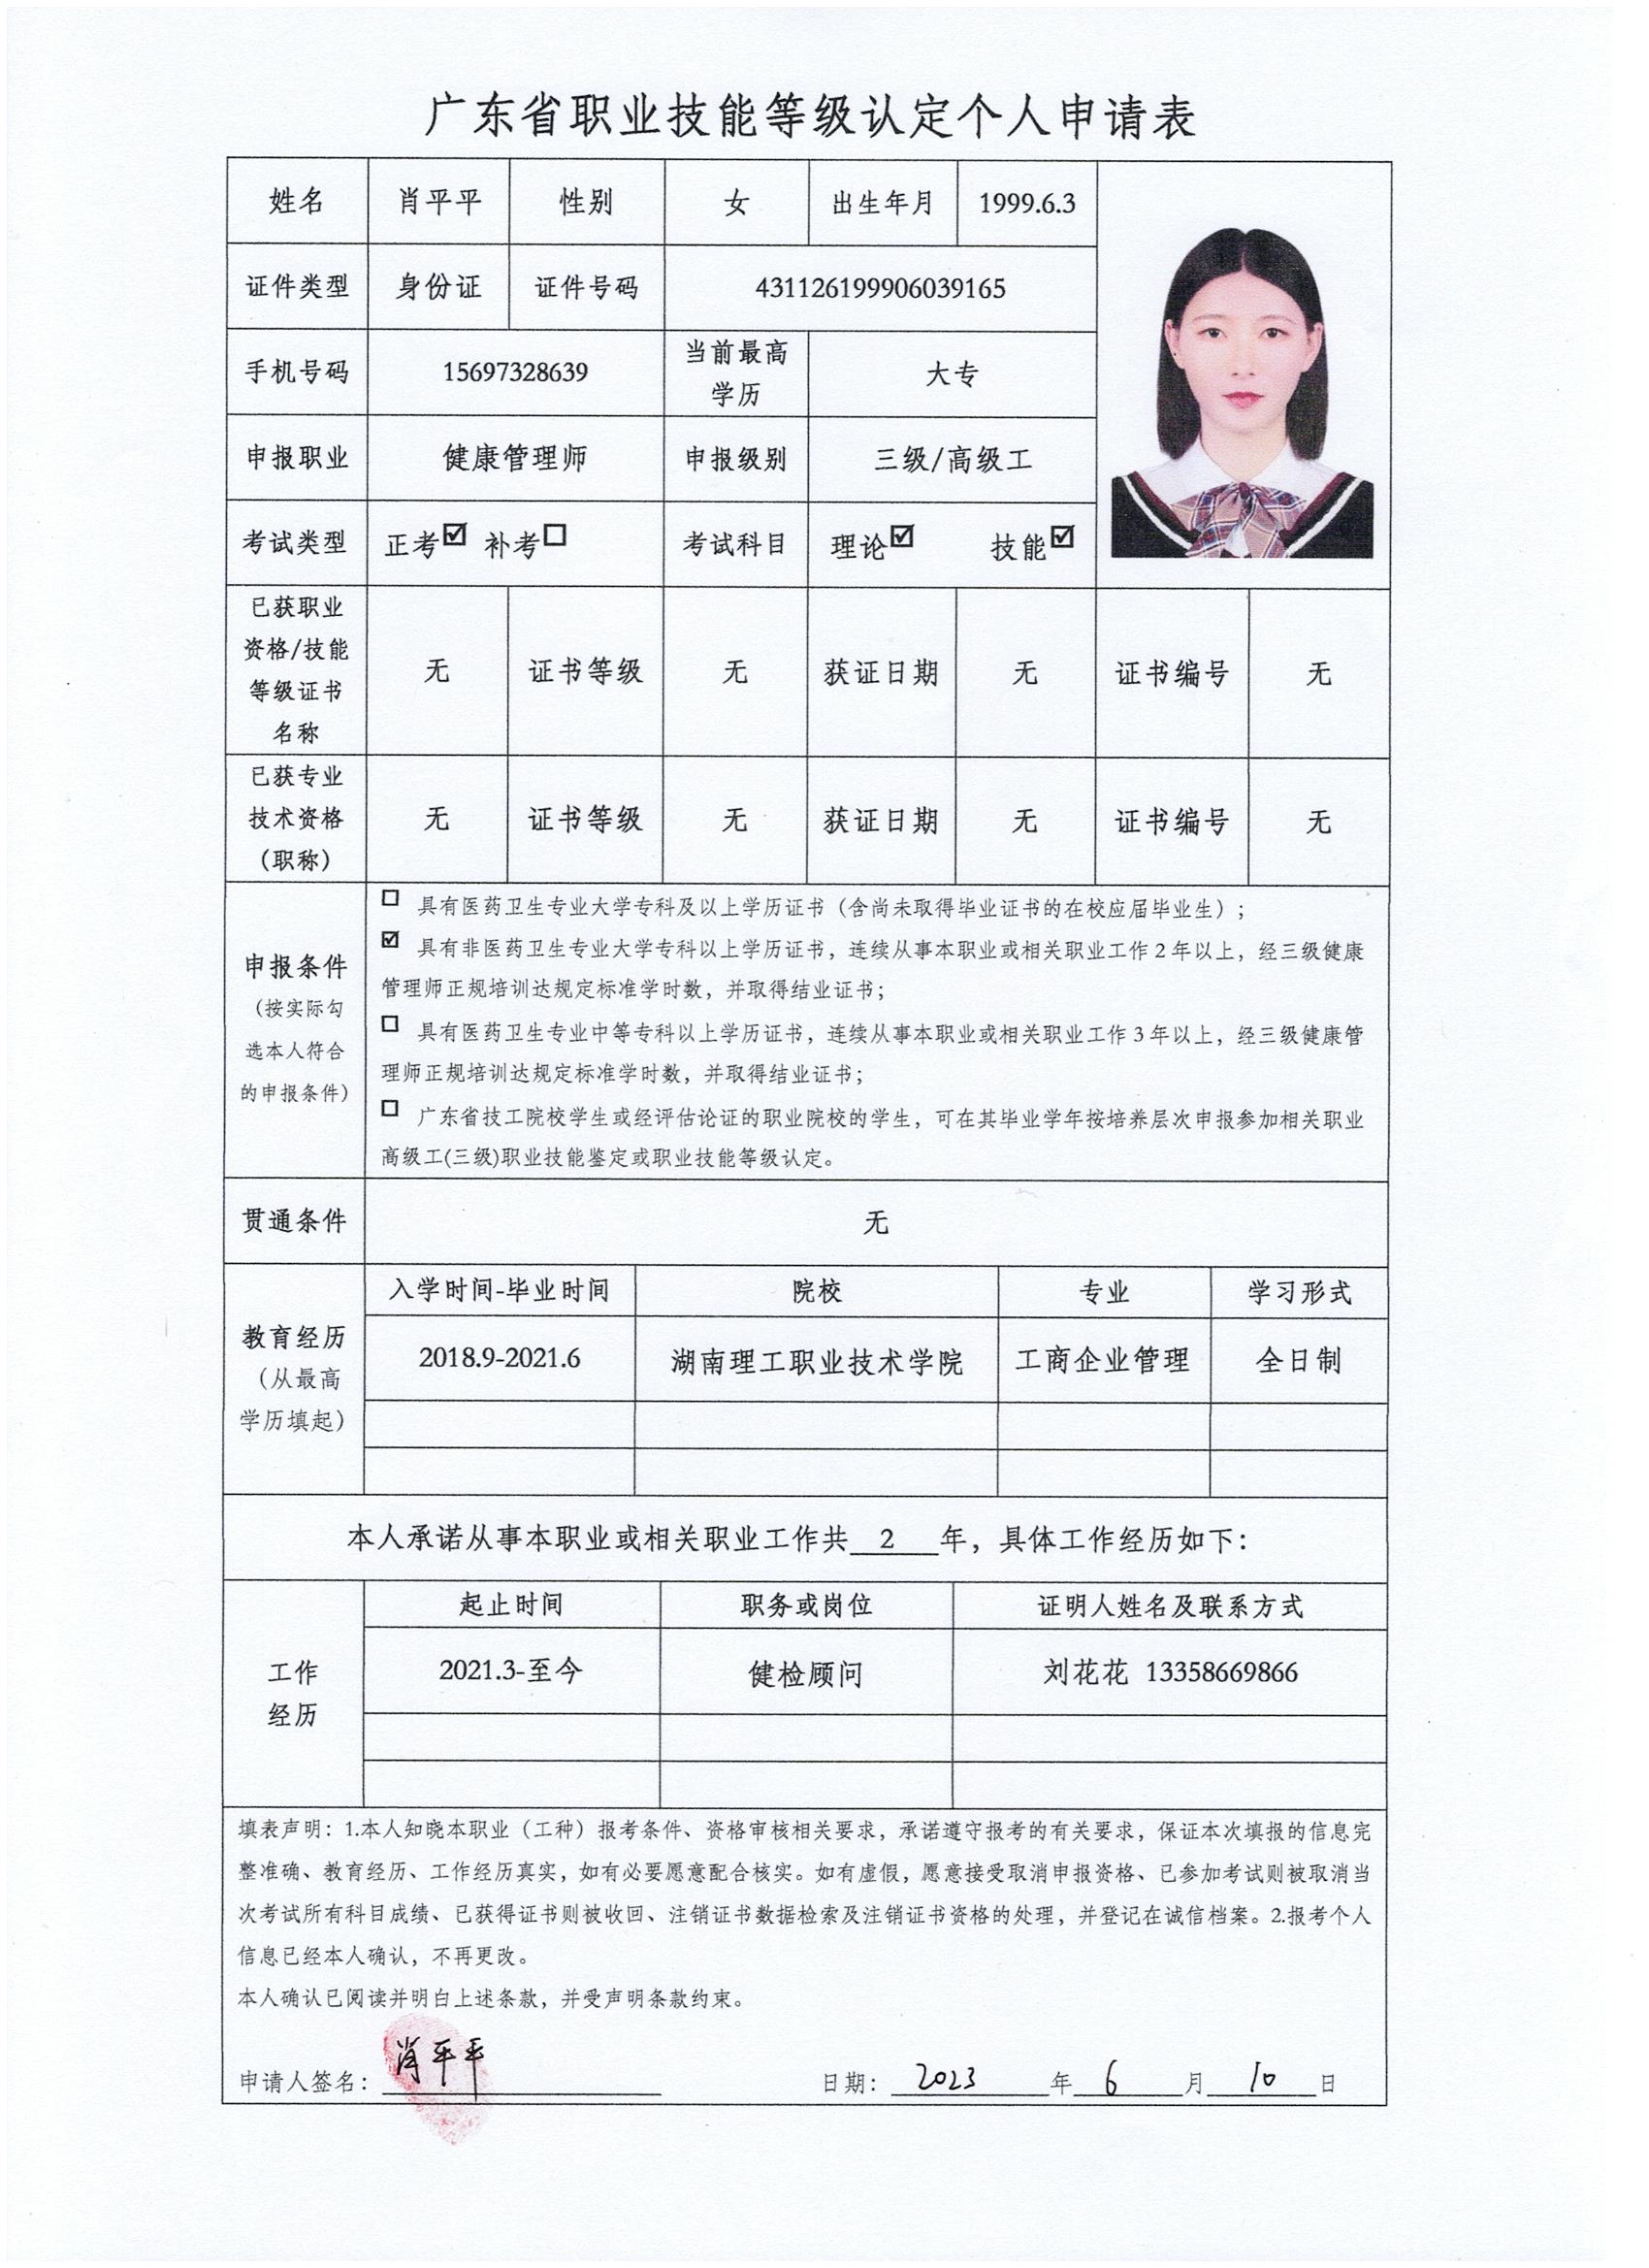 广东省职业技能等级认定个人申请表
姓名 肖平平 性别 女 出生年月 1999.6.3
证件类型 身份证 证件号码 431126199906039165
手机号码 15697328639 当前最高学历 大专
申报职业 健康管理师 申报级别 三级/高级工
考试类型 正考☑ 补考☐ 考试科目 理论☑ 技能☑
已获职业
资格/技能
等级证书
名称
无 证书等级 无 获证日期 无 证书编号 无
已获专业
技术资格
（职称）
无 证书等级 无 获证日期 无 证书编号 无
申报条件
（按实际勾
选本人符合
的申报条件）
☐ 具有医药卫生专业大学专科及以上学历证书（含尚未取得毕业证书的在校应届毕业生）；
☑ 具有非医药卫生专业大学专科以上学历证书，连续从事本职业或相关职业工作2年以上，经三级健康
管理师正规培训达规定标准学时数，并取得结业证书；
☐ 具有医药卫生专业中等专科以上学历证书，连续从事本职业或相关职业工作3年以上，经三级健康管
理师正规培训达规定标准学时数，并取得结业证书；
☐ 广东省技工院校学生或经评估论证的职业院校的学生，可在其毕业学年按培养层次申报参加相关职业
高级工(三级)职业技能鉴定或职业技能等级认定。
贯通条件 无
教育经历
（从最高
学历填起）
入学时间-毕业时间 院校 专业 学习形式
2018.9-2021.6 湖南理工职业技术学院 工商企业管理 全日制
本人承诺从事本职业或相关职业工作共 2 年，具体工作经历如下：
工作
经历
起止时间 职务或岗位 证明人姓名及联系方式
2021.3-至今 健检顾问 刘花花 13358669866
填表声明：1.本人知晓本职业（工种）报考条件、资格审核相关要求，承诺遵守报考的有关要求，保证本次填报的信息完
整准确、教育经历、工作经历真实，如有必要愿意配合核实。如有虚假，愿意接受取消申报资格、已参加考试则被取消当
次考试所有科目成绩、已获得证书则被收回、注销证书数据检索及注销证书资格的处理，并登记在诚信档案。2.报考个人
信息已经本人确认，不再更改。
本人确认已阅读并明白上述条款，并受声明条款约束。
申请人签名：肖平平 日期：2023年6月10日